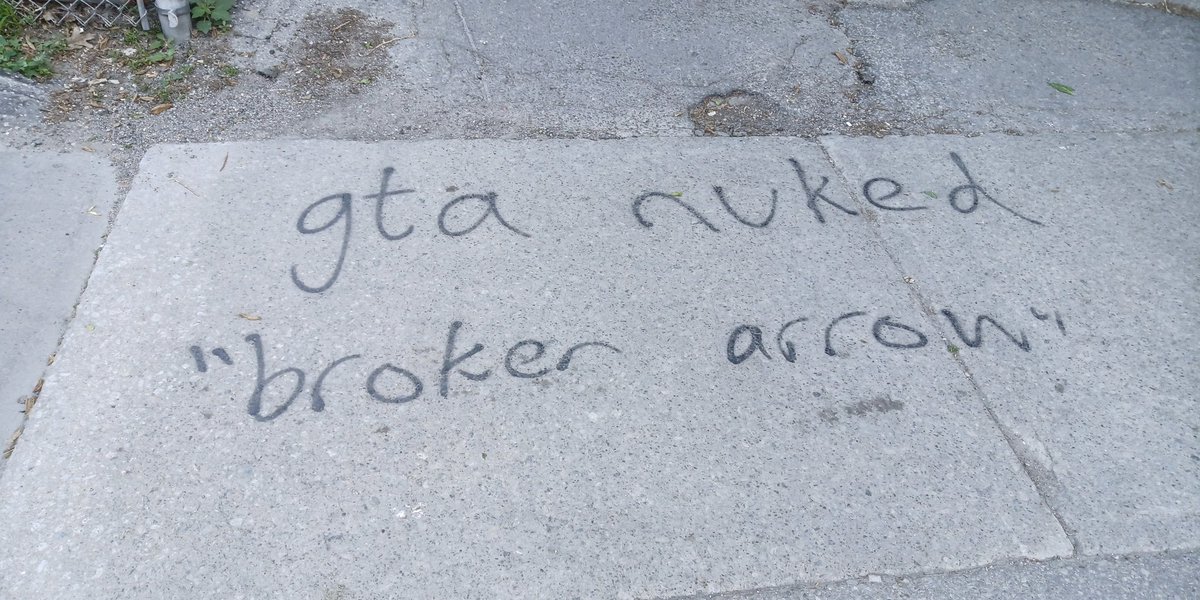 gta nuked
"broker arrow"